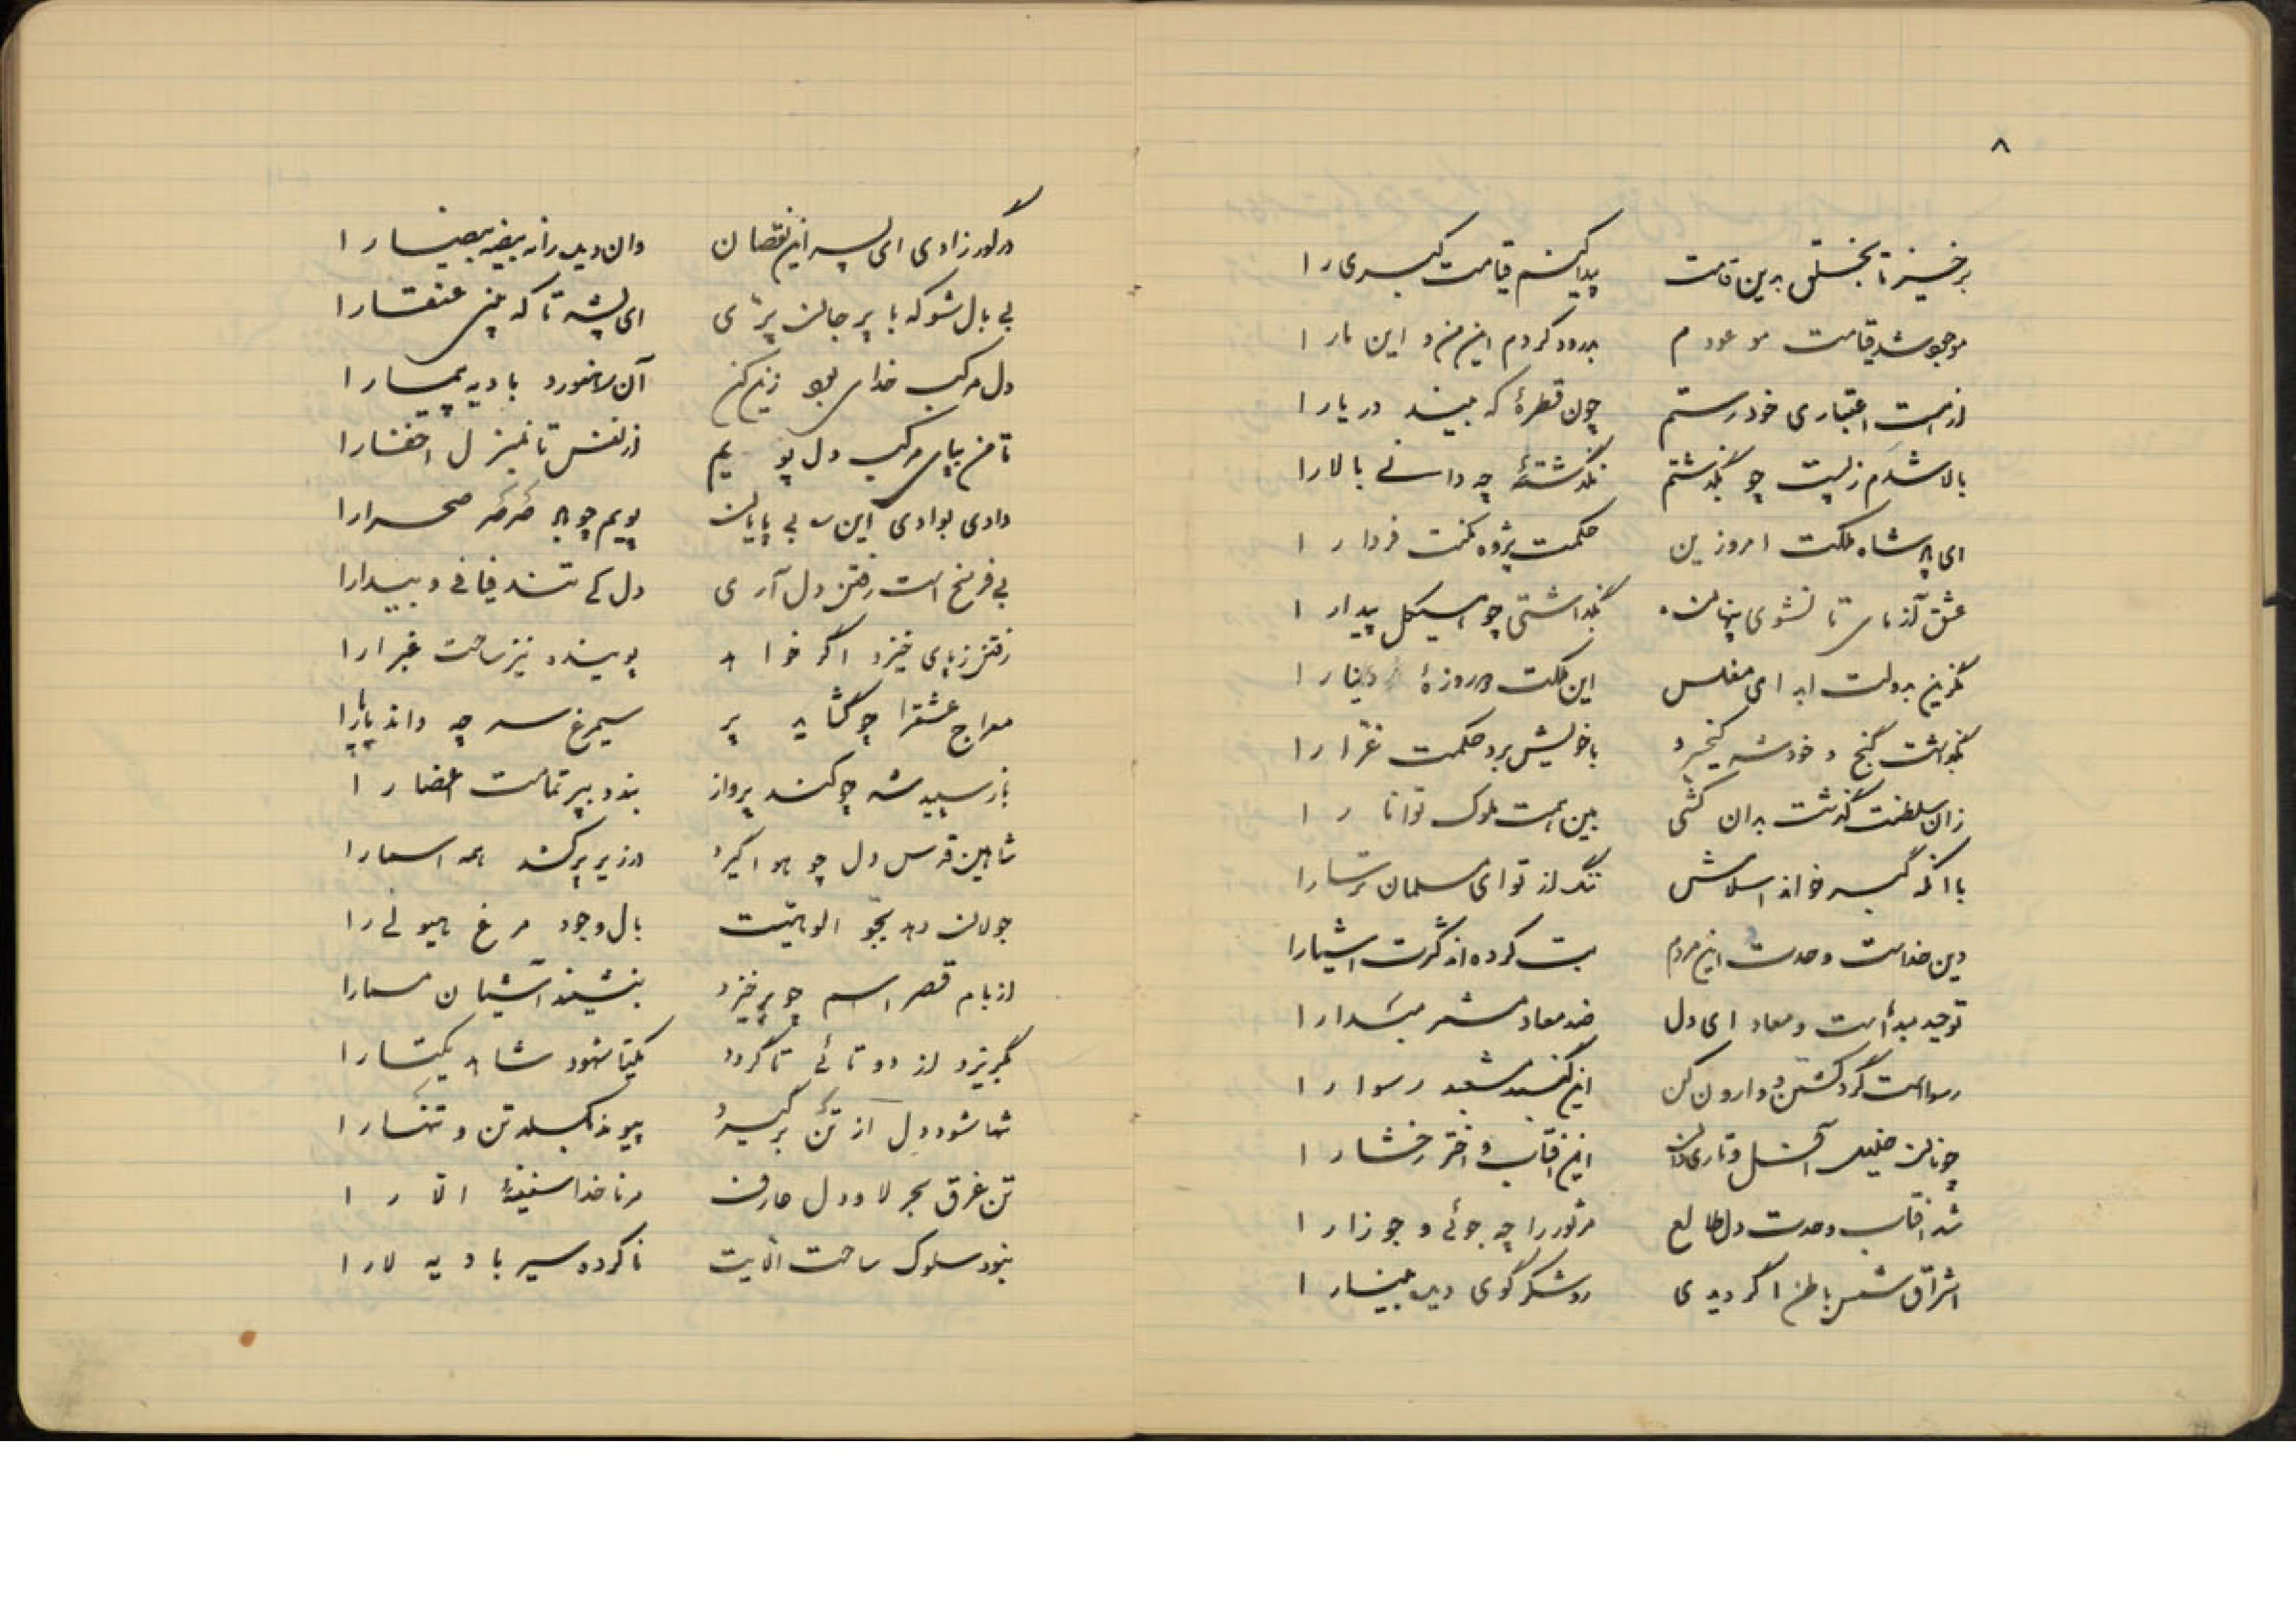 ۸
برخیز تا بخلق بدین قامت پیدا کنم قیامت کبری را
موجود شد قیامت موعودم بدرود کردم این من و این ما را
از هست اعتباری خود رستم چون قطرهٔ که بیند دریا را
بالا شدم ز پست چو بگذشتم نگذشتهٔ چه دانی بالا را
ای پادشاه ملکت امروزین حکمت پژوه مکنت فردا را
عشق آزمای تا نشوی پنهان بگذاشتی چو هیکل پیدا را
مگزین بدولت ابد ای مفلس این ملکت دو روزهٔ دنیا را
بگذاشت گنج و خود شد کیخسرو با خویش برد حکمت غرا را
زان سلطنت گذشت بدان کشی بین همت ملوک توانا را
با آنکه گبر خواند اسلامش ننگ از تو ای مسلمان ترسا را
دین خداست وحدت این مردم بت کرده‌اند کثرت اشیا را
توحید مبدأست و معاد ای دل ضد معاد مشمر مبدا را
رسواست گرد گشتن و وارون کن این گنبد مشعبد رسوا را
چونان خلیل آفل و تاری دان این آفتاب و اختر رخشا را
شد آفتاب وحدت دل طالع مر ثور را چه جوئی و جوزا را
اشراق شمس باطن اگر دیدی رو شکر گوی دیده بینا را
ور کور زادی ای پسر این نقصان وان دیده راز بیضه بیضا را
بی بال شو که با پر جان پری ای پشه تا که بینی عنقا را
دل مرکب خدای بود زین کن آن رهنورد بادیه پیما را
تا من بپای مرکب دل پویم از نفس تا بمنزل اخفا را
وادی بوادی این ره بی پایان پویم چو برق و صحرا را
بی فرسخ است رفتن دل آری دل کی تند فیافی و بیدا را
رفتن ز پای خیزد اگر خواهد پوینده نیز ساحت غبرا را
معراج عشق را چو گشاید پر سیمرغ سر چه داند پا را
باز سپید شه چو کند پرواز بندد بپر تمامت اعضا را
شاهین قدس دل چو هوا گیرد در زیر پر کشد همه اسما را
جولان دهد بجو الوهیت بال وجود مرغ هیولی را
از بام قصر اسم چو برخیزد بنشیند آشیان مسما را
بگریزد از دوتائی تا گردد یکتا شهود شاهد یکتا را
تنها شود دل از تن برگیرد پیوند بگسلد تن و تنها را
تن غرق بحر لا و دل عارف مر ناخدا سفینهٔ الا را
نبود سلوک ساحت الائیت ناکرده سیر بادیه لا را